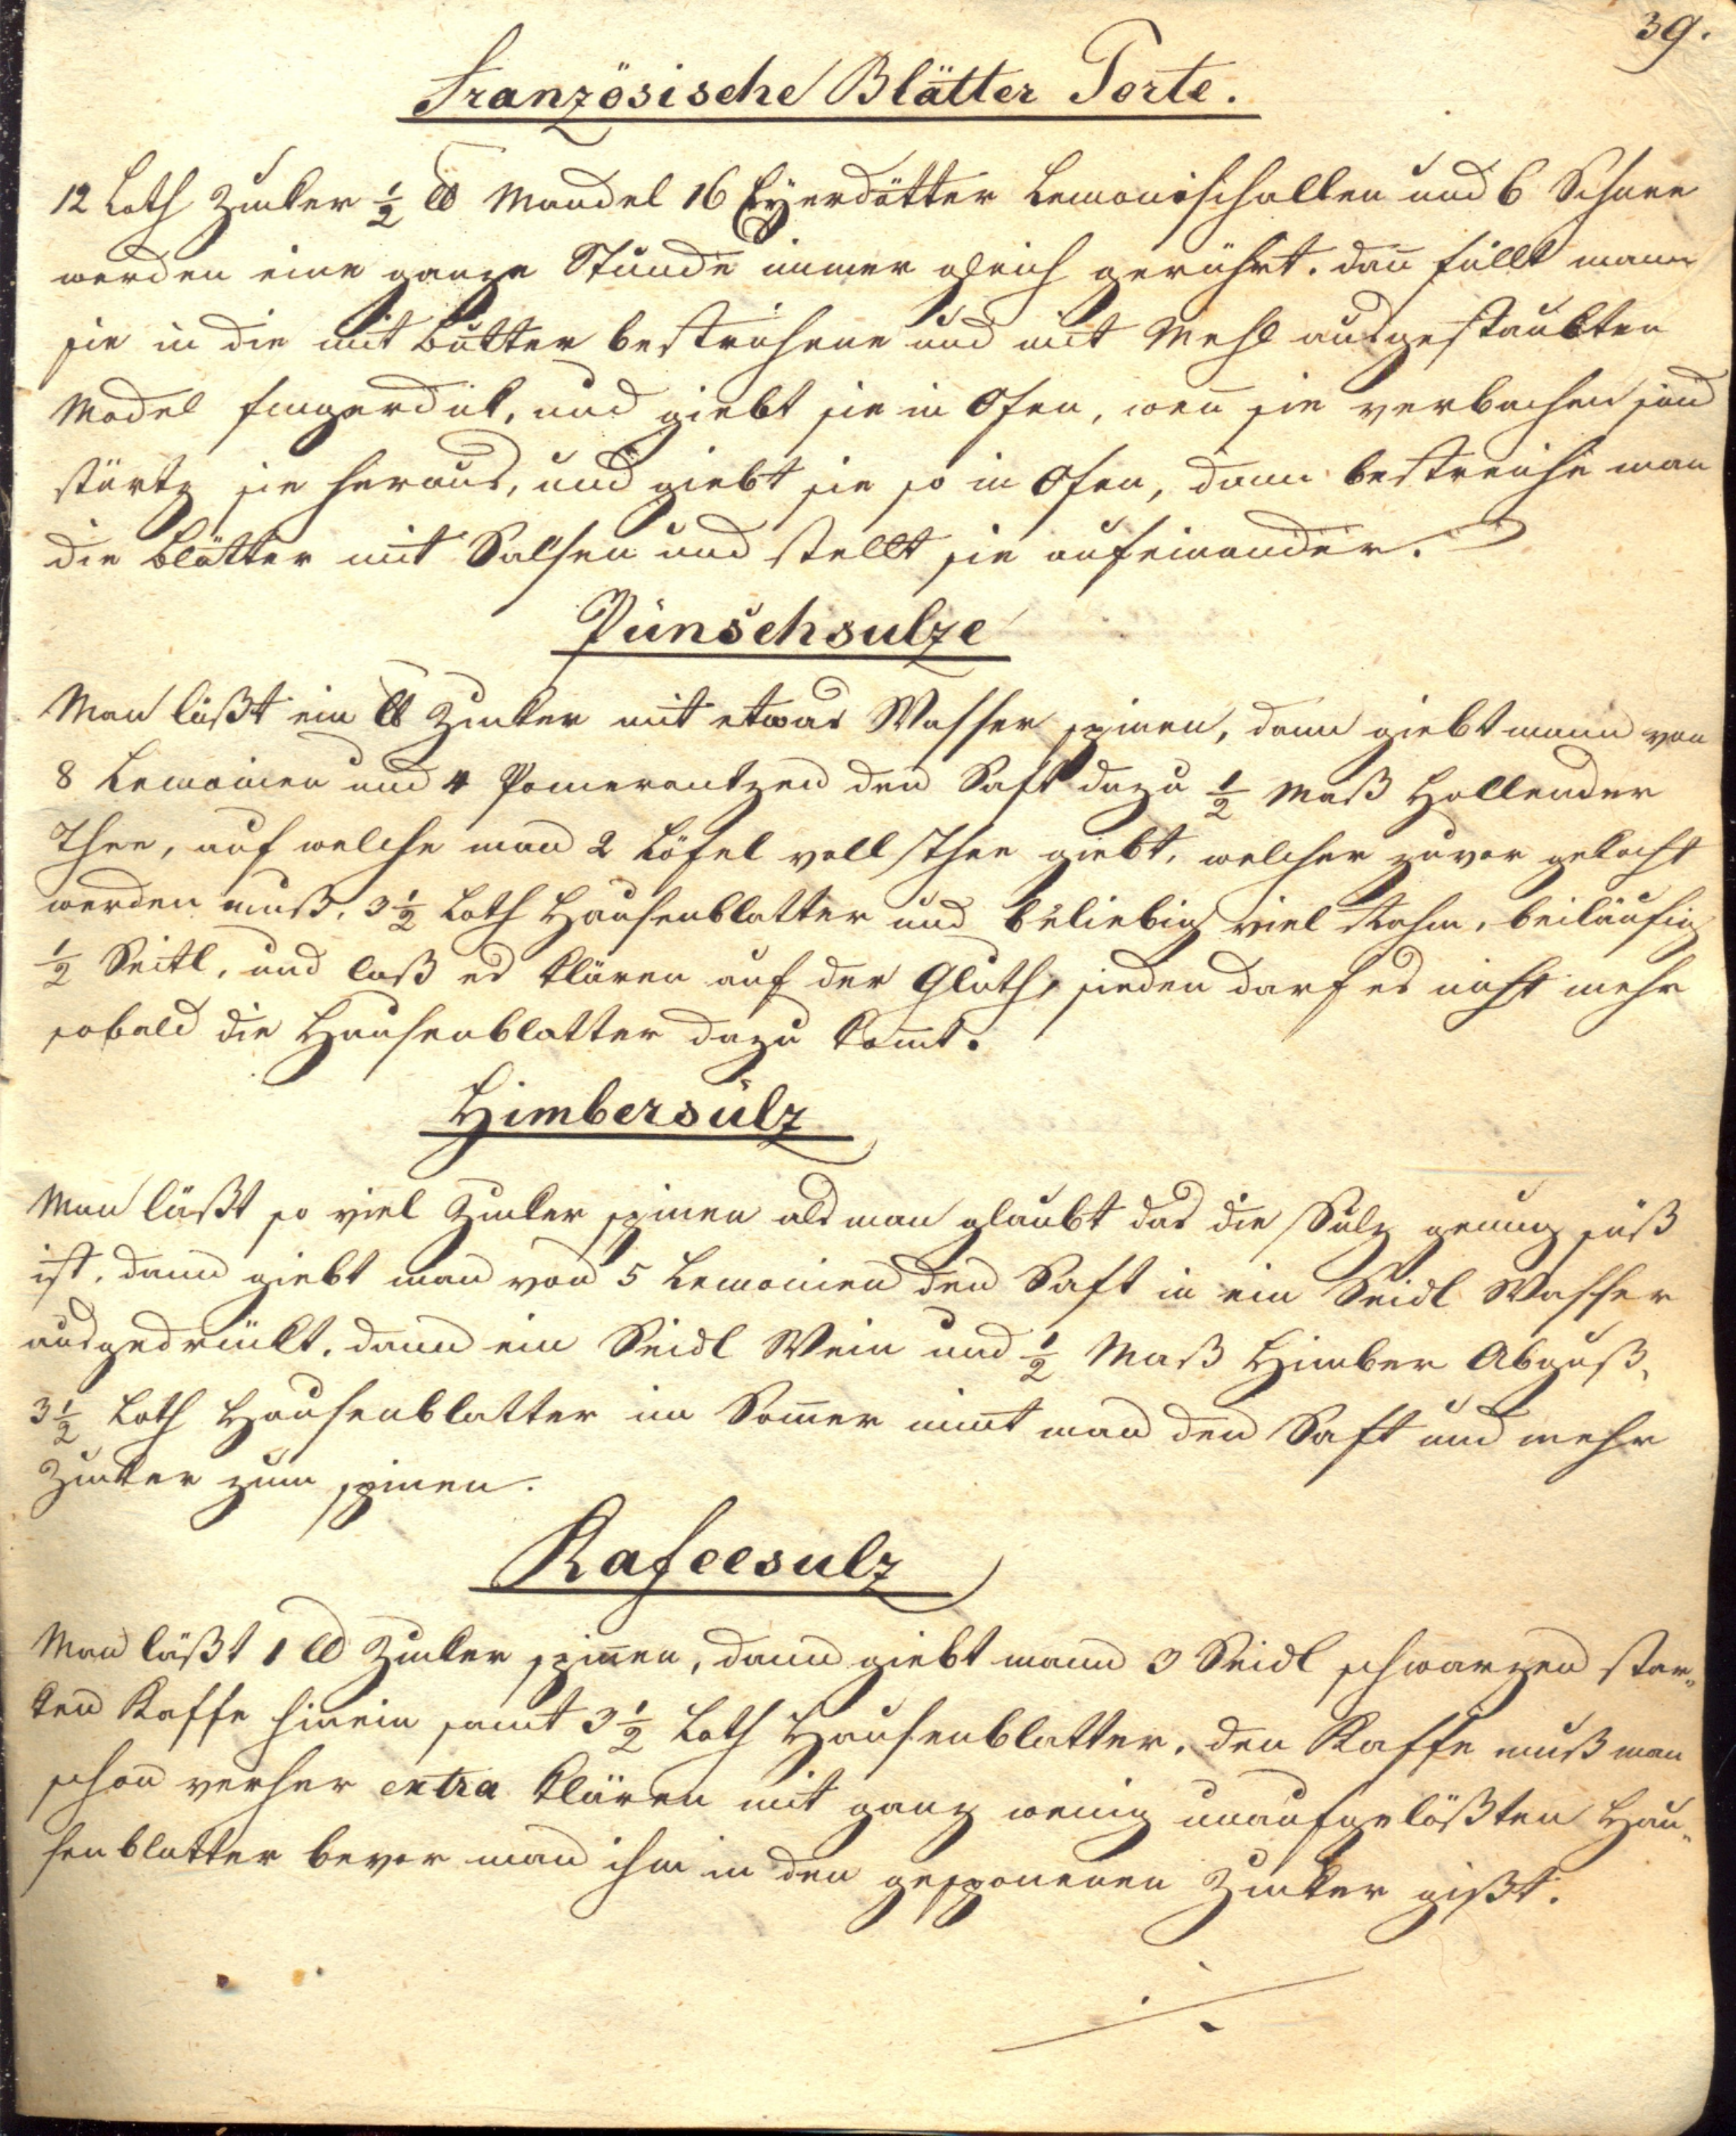 39.
Französische Blätter Torte.
12 Loth Zucker ½ ℔ Mandel 16 Eÿerdötter Lemonischallen und 6 Schnee
werden eine ganze Stunde immer gleich gerührt. dan̄ füllt mann
sie in die mit Butter bestrichene und mit Mehl ausgestaubten
Model fingerdik, und giebt sie in Ofen, wen̄ sie verbachen sind
stürtz sie heraus, und giebt sie so in Ofen, dann bestreiche man
die Blätter mit Salsen und stellt sie aufeinander.
Punschsulze
Man läßt ein ℔ Zucker mit etwas Wasser spinen, dann giebt mann von
8 Lemonien und 4 Pomerantzen den Saft dazu ½ Maß Hollender
Thee, auf welche man 2 Löfel voll Thee giebt, welcher zuvor gekocht
werden muß. 3½ Loth Hausenblatter und beliebig viel Rohm, beiläufig
½ Seitl, und laß es klären auf der Gluth, sieden darf es nicht mehr
sobald die Hausenblatter dazu kom̄t.
Himbersulz
Man läßt so viel Zucker spinen als man glaubt das die Sulz genug süß
ist, dann giebt man von 5 Lemonien den Saft in ein Seidl Wasser
ausgedrückt, dann ein Seidl Wein und ½ Maß Himber Abguß,
3½ Loth Hausenblatter im Som̄er nim̄t man den Saft und mehr
Zucker zum spinen.
Kafeesulz
Man läßt 1 ℔ Zucker spin̄en, dann giebt mann 3 Seidl schwarzen star„
ken Kaffe hinein samt 3½ Loth Hausenblatter, den Kaffe muß man
schon verher extra klären mit ganz wenig unaufgelößten Hau„
senblatter bevor man ihm in den gesponenen Zucker gißt.